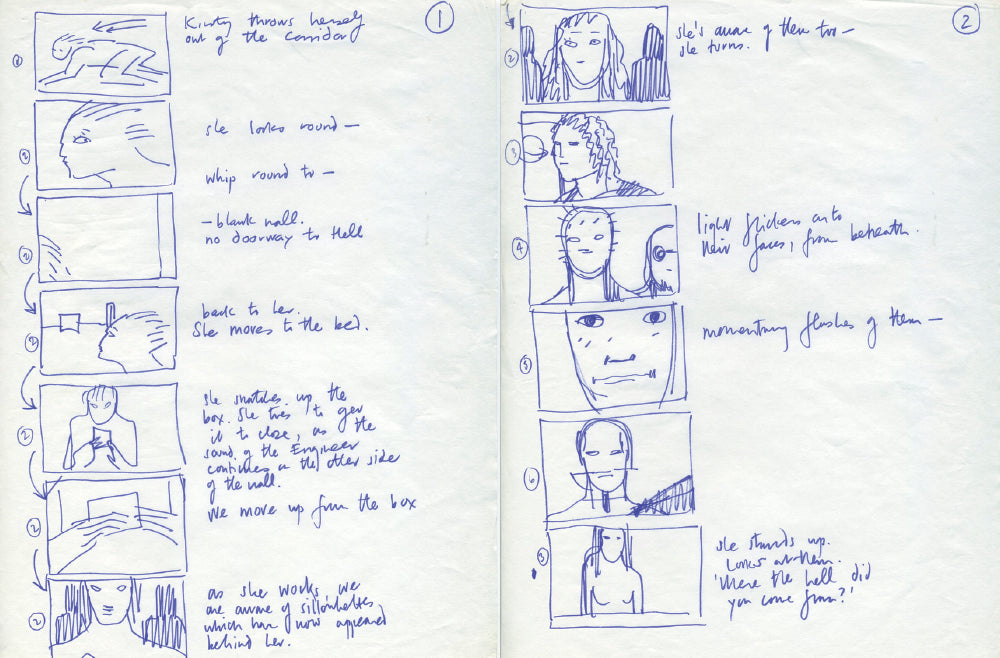 1
Kirsty throws herself
out of the corridor
1
2
she looks round —
whip round to —
2
— blank wall.
no doorway to Hell
2
back to her.
She moves to the bed.
2
she snatches up the
box. She tries to get
it to close, as the
sound of the Engineer
continues on the other side
of the wall.
2
We move up from the box
2
as she works, we
are aware of silhouettes
which have now appeared
behind her.
2
2
she's aware of them too —
she turns.
2
3
light flickers onto
their faces, from beneath.
4
momentary flashes of them —
5
6
she stands up.
Looks at them.
'Where the hell did
you come from?'
3